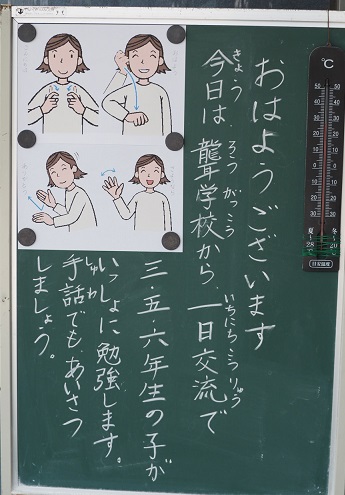 おはようございます
今日は、聾学校から、一日交流で
きょう
ろうがっこう
いちにちこうりゅう
三・五・六年生の子が
いっしょに勉強します。
手話でも、あいさつ
しゅわ
しましょう。
℃
50 50
40 40
30 30
20 20
10 10
0 0
10 10
20 20
30 30
夏~ 冬~
28 20
目安温度